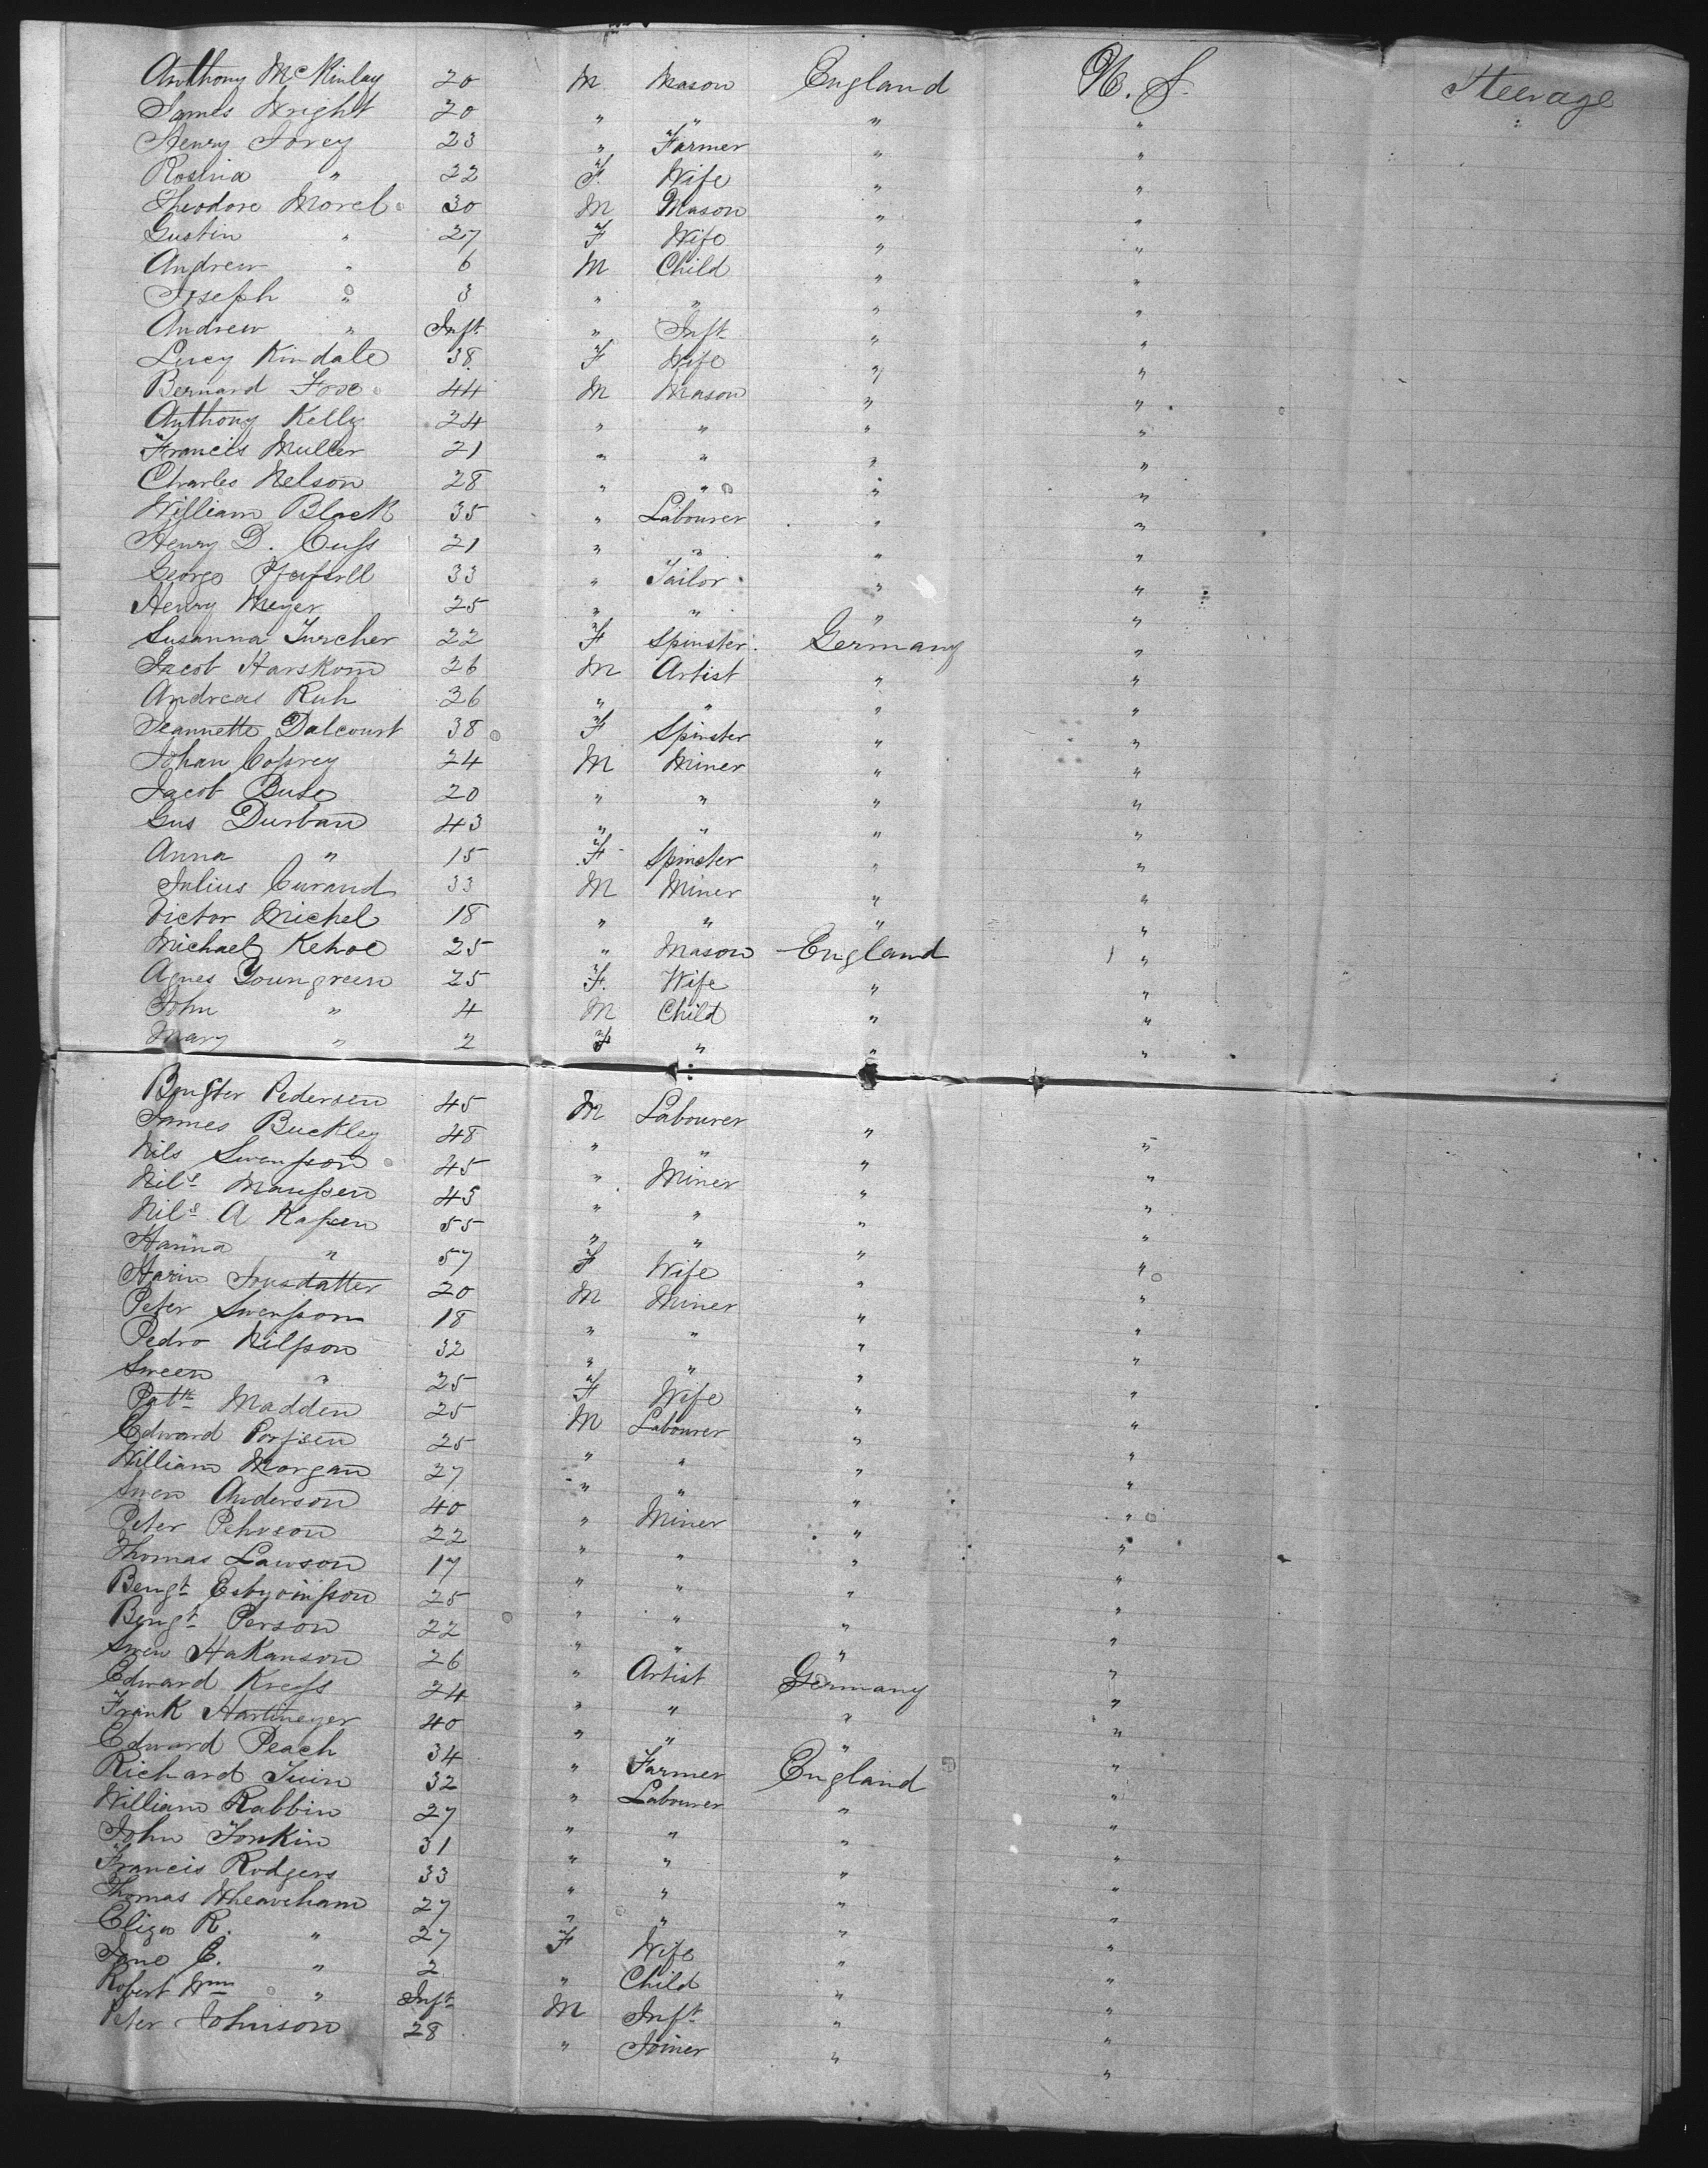 Anthony McKinlay 20 M Mason England U. S. Steerage
James Wright 20 " " " " :
Henry Torey 23 " Farmer " "
Rosina " 22 F. Wife " "
Theodore Morel 30 M Mason " "
Gustin " 27 F Wife " "
Andrew " 6 M Child " "
Joseph " 3 " " " "
Andrew " Inft " Inft " "
Lucy Kindale 38 F Wife " "
Bernard Foox 44 M Mason " "
Anthony Kelly 24 " " " "
Francis Muller 21 " " " "
Charles Nelson 28 " " " "
William Black 35 " Labourer " "
Henry D. Cuss 21 " " " "
George 33 " Tailor " "
Henry Meyer 25 " " " "
Susanna Turcher 22 F Spinster Germany "
Jacob Harskom 26 M Artist " "
Andreas Ruh 26 " " " "
Jeannette Dalcourt 38 F Spinster " "
Johan 24 M Miner " "
Jacob Buse 20 " " " "
Gus Durban 43 " " " "
Anna " 15 F Spinster " "
Julius Curaud 33 M Miner " "
Victor Michel 18 " " " "
Michael Kehoe 25 " Mason England "
Agnes Youngreen 25 F. Wife " "
John " 4 M Child " "
Mary " 2 F " " "
Pedersen 45 M Labourer " "
James Buckley 48 " " " "
Nils Swensson 45 " Miner " "
Nils Maussen 45 " " " "
Nils A Kassen 55 " " " "
Hanna " 57 F Wife " "
Harin 20 M Miner " "
Peter Swensson 18 " " " "
Pedro Nilsson 32 " " " "
Sween " 25 F Wife " "
Patk Madden 25 M Labourer " "
Edward 25 " " " "
William Morgan 27 " " " "
Swen Anderson 40 " Miner " "
Peter Pehrson 22 " " " "
Thomas Lawson 17 " " " "
Bengt 25 " " " "
Bengt Person 22 " " " "
Swen Hakanson 26 " " " "
Edward Kress 24 " Artist Germany "
Frink Hartmeyer 40 " " " "
Edward Peach 34 " " " "
Richard Tuin 32 " Farmer England "
William Rabbin 27 " Labourer " "
John Tonkin 31 " " " "
Francis Rodgers 33 " " " "
Thomas 27 " " " "
Eliza R. " 27 F Wife " "
Jane E. " 2 " Child " "
Robert Wm " Inft M Inft " "
Peter Johnson 28 " Joiner " "